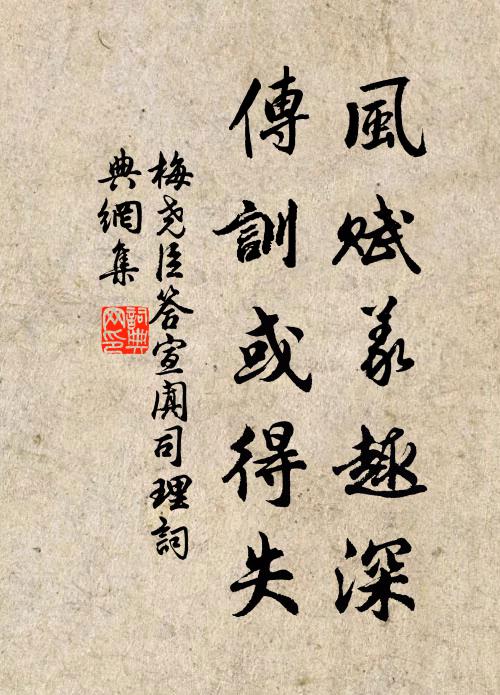 風賦義趣深
傳訓或得失
梅堯臣答宣闐司理詞
典網集
詞典網印